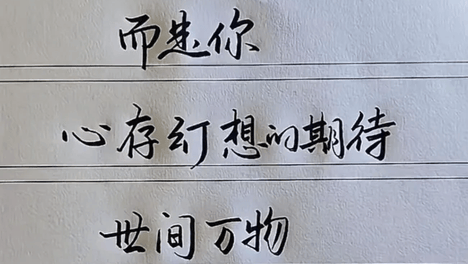 而是你
心存幻想的期待
世间万物